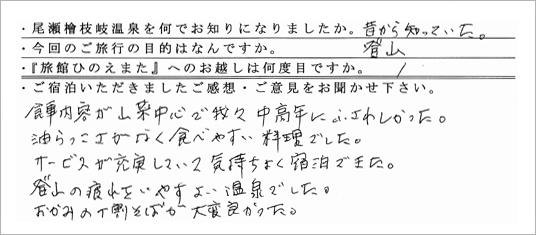 ・尾瀬檜枝岐温泉を何でお知りになりましたか。昔から知っていた。
・今回のご旅行の目的はなんですか。 登山
・『旅館ひのえまた』へのお越しは何度目ですか。 1
・ご宿泊いただきましたご感想・ご意見をお聞かせ下さい。
食事内容が山菜中心で我々中高年にふさわしかった。
油らっこさがなく食べやすい料理でした。
サービスが充実していて気持ちよく宿泊できた。
登山の疲れをいやすよい温泉でした。
おかみの丁寧そばが大変良かった。